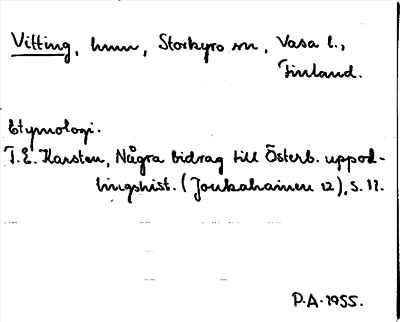 Vitting, hmn, Storkyro sn, Vasa l.,
Finland.
Etymologi.
T.E. Karsten, Några bidrag till Österb. uppod-
lingshist. (Joukahainen 12), s. 11.
P.A. 1955.